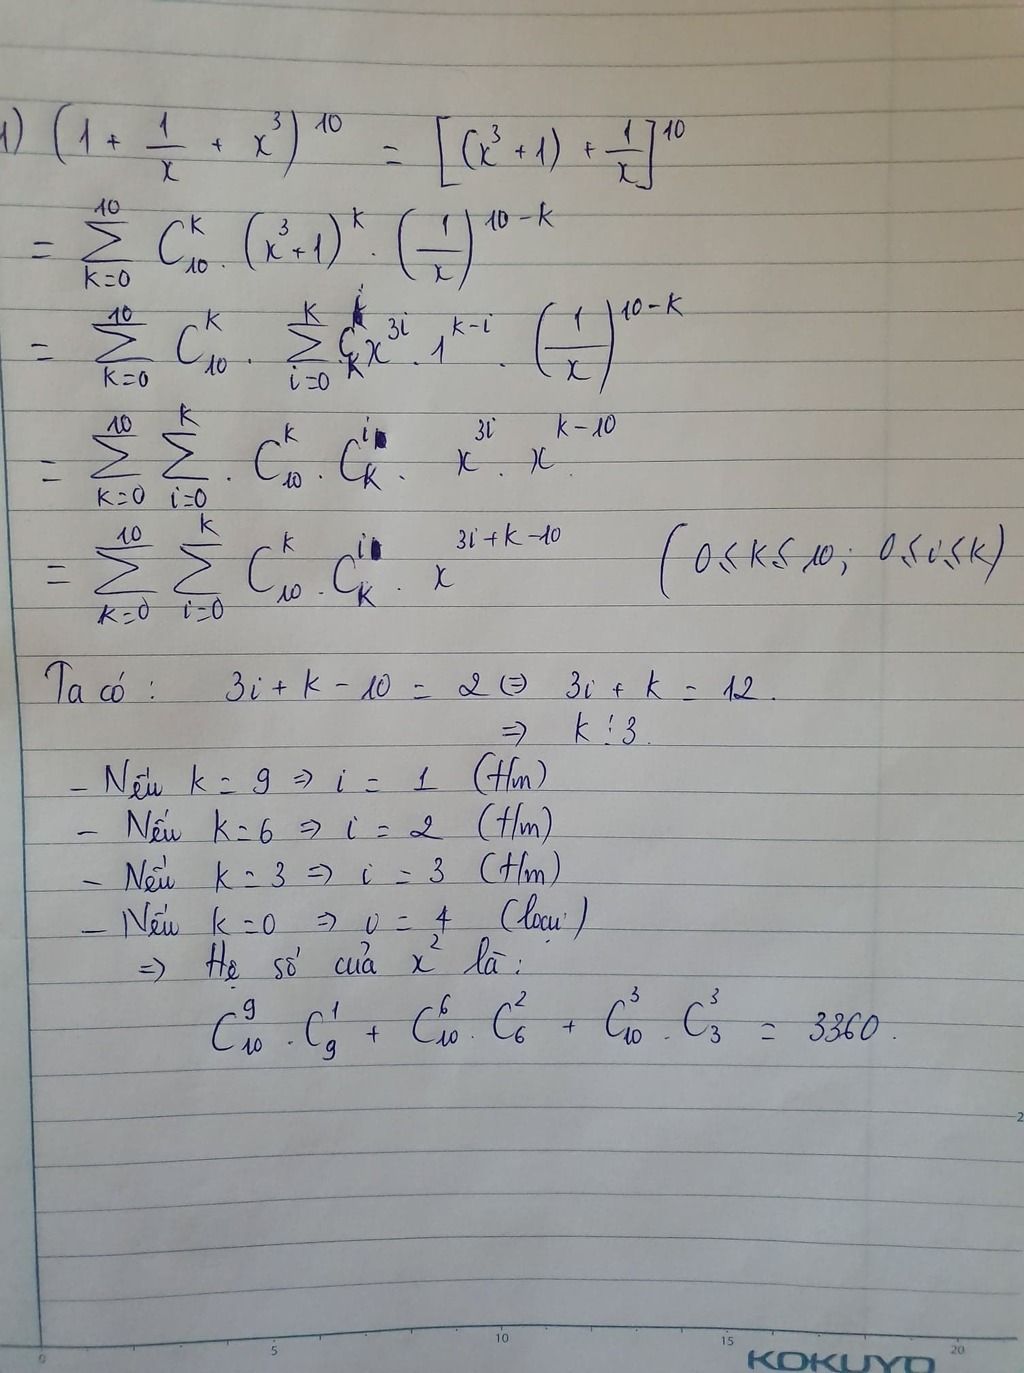 1) (1 + 1/x + x³)¹⁰ = [(x³ + 1) + 1/x]¹⁰
= ∑_{k=0}^{10} C_{10}^{k} . (x³+1)^k . (1/x)^{10-k}
= ∑_{k=0}^{10} C_{10}^{k} . ∑_{i=0}^{k} C_{k}^{i} x^{3i} . 1^{k-i} . (1/x)^{10-k}
= ∑_{k=0}^{10} ∑_{i=0}^{k} . C_{10}^{k} . C_{k}^{i} . x^{3i} . x^{k-10}
= ∑_{k=0}^{10} ∑_{i=0}^{k} C_{10}^{k} . C_{k}^{i} . x^{3i+k-10} (0 ≤ k ≤ 10; 0 ≤ i ≤ k)
Ta có : 3i + k - 10 = 2 ⇔ 3i + k = 12.
⇒ k ⋮ 3.
- Nếu k = 9 ⇒ i = 1 (t/m)
- Nếu k=6 ⇒ i = 2 (t/m)
- Nếu k = 3 ⇒ i = 3 (t/m)
- Nếu k =0 ⇒ i = 4 (loại)
⇒ Hệ số của x² là :
C_{10}^{9} . C_{9}^{1} + C_{10}^{6} . C_{6}^{2} + C_{10}^{3} . C_{3}^{3} = 3360.
2
0 5 10 15 20
KOKUYO